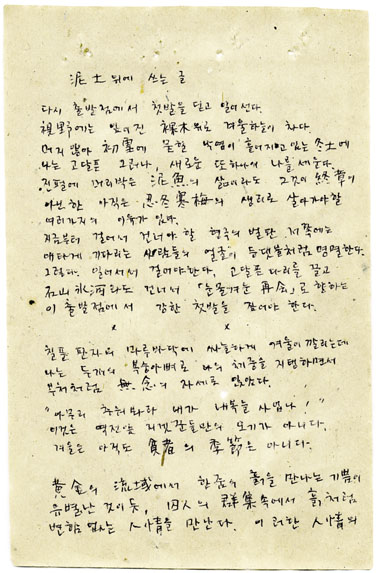 泥土 위에 쓰는 글
다시 출발점에서 첫발을 딛고 일어선다.
視野에는 잎이 진 裸木 위로 겨울하늘이 차다.
머지 않아 初雪에 묻힐 낙엽이 흩어지고 있는 冬土에
나는 고달픈 그러나, 새로운 또하나의 나를 세운다.
진펄에 머리박은 泥魚의 삶이라도 그것이 終章이
아닌 한 아직은 忍冬 寒梅의 생리로 살아가야할
여러가지의 이유가 있다.
지금부터 걸어서 건너야 할 형극의 벌판 저쪽에는
애타게 기다리는 사람들의 얼굴이 등댓불처럼 명멸한다.
그렇다. 일어서서 걸어야한다. 고달픈 다리를 끌고
石山 氷河라도 건너서 「눈물겨운 再会」로 향하는
이 출발점에서 강한 첫발을 걸어야 한다.
x x
칠푼 판자의 마루바닥에 싸늘하게 겨울이 깔리는데
나는 두개의 복숭아뼈로 나의 체중을 지탱하면서
부처처럼 無念의 자세로 앉았다.
"아무리 추워봐라 내가 내복을 사입나!"
이것은 역전앞 지겟꾼들만의 오기가 아니다.
겨울은 아직도 貧者의 季節은 아니다.
黃金의 流域에서 한줌의 흙을 만나는 기쁨이
유별난 것이듯, 囚人의 群集속에서 흙처럼
변함 없는 人情을 만난다. 이러한 人情의